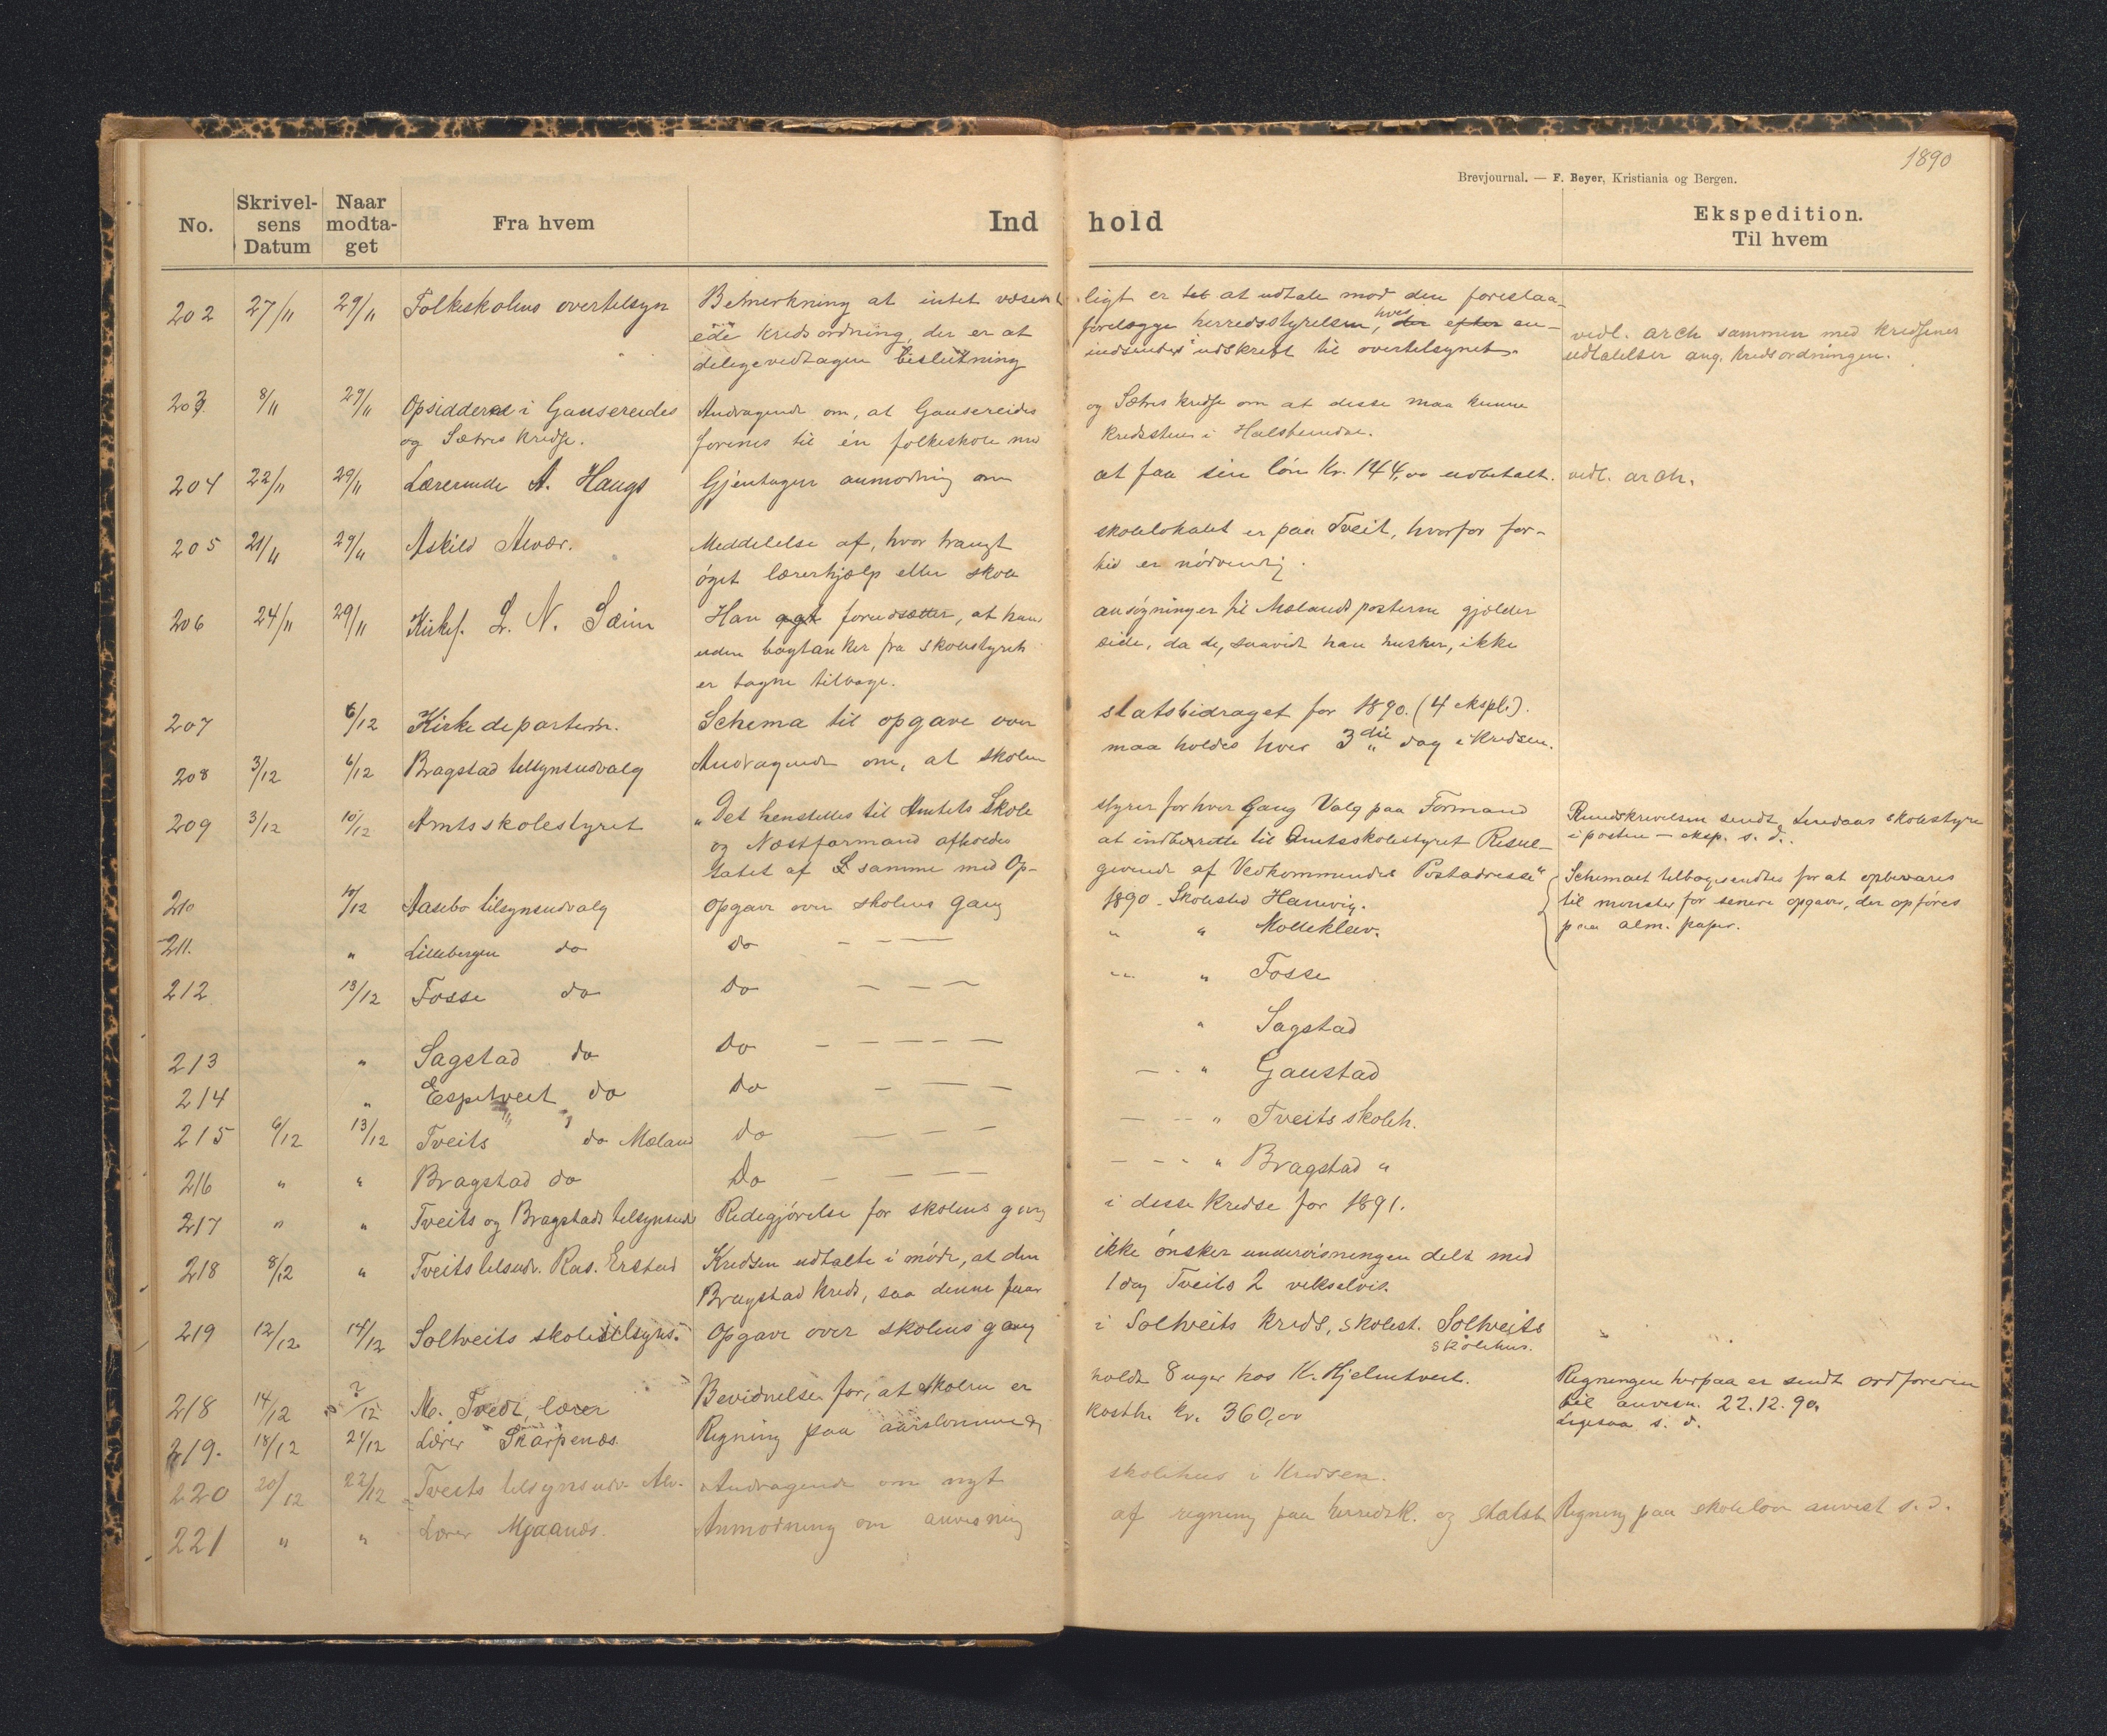 1890
Brevjournal. — F. Beyer, Kristiania og Bergen.
No. Skrivelsens Datum Naar modtaget Fra hvem Indhold Ekspedition. Til hvem
202 27/11 29/11 Folkeskolens overtilsyn Bemerkning at intet væsent ligt er at udtale mod den foreslaa-
ede kredsordning, der er at forelægge herredsstyrelsen, hves der efter en- vedl. arch sammen med kredsenes
delige vedtagen beslutning indsendes i udskrift til overtilsynet. udtalelser ang. kredsordningen.
203 8/11 29/11 Opsidderne i Gausereides Andragende om, at Gausereides og Sætres kredse om at disse maa kunne
og Sætres kredse. forenes til én folkeskole med kredssteue i Halstendøe.
204 22/11 29/11 Lærerinde A. Haugs Gjentagen anmodning om at faa sin løn Kr. 144,00 udbetalt. vedl. arch.
205 21/11 29/11 Askild Alvær. Meddelelse af, hvor trangt skolelokalet er paa Tveit, hvorfor for-
øget lærerhjælp eller skole tid er nødvendig.
206 24/11 29/11 Kirkes. L. N. Sæim Han agt forudsætter, at hans ansøgninger til Mælands posterne gjælder
uden bagtanker fra skolestyrets side, da de, saavidt han husker, ikke
er tagne tilbage.
207 6/12 Kirkedepartem. Schema til opgave over statsbidraget for 1890. (4 ekspl.).
208 3/12 6/12 Bragstad tilsynsudvalg Andragende om, at skolen maa holdes hver 3die dag i kredsen.
209 3/12 10/12 Amtsskolestyret „Det henstilles til Amtets Skole styrer for hver Gang Valg paa Formand Rundskrivelsen sendt Lindaas skolestyre
og Næstformand afholdes at indberette til Amtsskolestyret Resul- i posten — eksp. s. d.
tatet af samme med Op- givende af Vedkommendes Postadresse"
210 10/12 Aasebø tilsynsudvalg Opgave over skolens gang 1890. Skolested Hanevig. Schemaet tilbagesendtes for at opbevares
til mønster for senere opgaver, der opføres
211. " Lillebergen do do — — — " " Molleklev. paa alm. papir.
212 13/12 Fosse do do — — — " " Fosse
213 " Sagstad do do — — — — " Sagstad
214 " Espetveit do do — — — — " Gaustad
215 6/12 13/12 Tveits do Mæland do — — — — " Tveits skoleh.
216 " " Bragstad do do — — — — " Bragstad "
217 " " Tveits og Bragstads tilsynsud Redegjørelse for skolens gang i disse kredse for 1891.
218 8/12 " Tveits tilsudv. Ras. Erstad Kredsen udtalte i møde, at den ikke ønsker undervisningen delt med
Bragstad kreds, saa denne faar 1 dag Tveits 2 vekselvis.
219 12/12 14/12 Soltveits skoletilsyns. Opgave over skolens gang i Soltveits kreds, skolest. Soltveits
skolehus.
218 14/12 ?/12 M. Tvedt, lærer Bevidnelse for, at skolen er holdt 8 uger hos K. Hjelmtveit. Regningen herpaa er sendt ordføreren
til anvisn. 22.12.90.
219. 18/12 21/12 Lærer Skarpenæs. Regning paa aarslønnen og kosth. kr. 360,00 Ligesaa s. d.
220 20/12 22/12 Tveits tilsynsudv. Alv. Andragende om nyt skolehus i kredsen.
221 " " Lærer Mjaanæs. Anmodning om anvisning af regning paa herredsk. og statst Regning paa skoleløn anvist s. d.